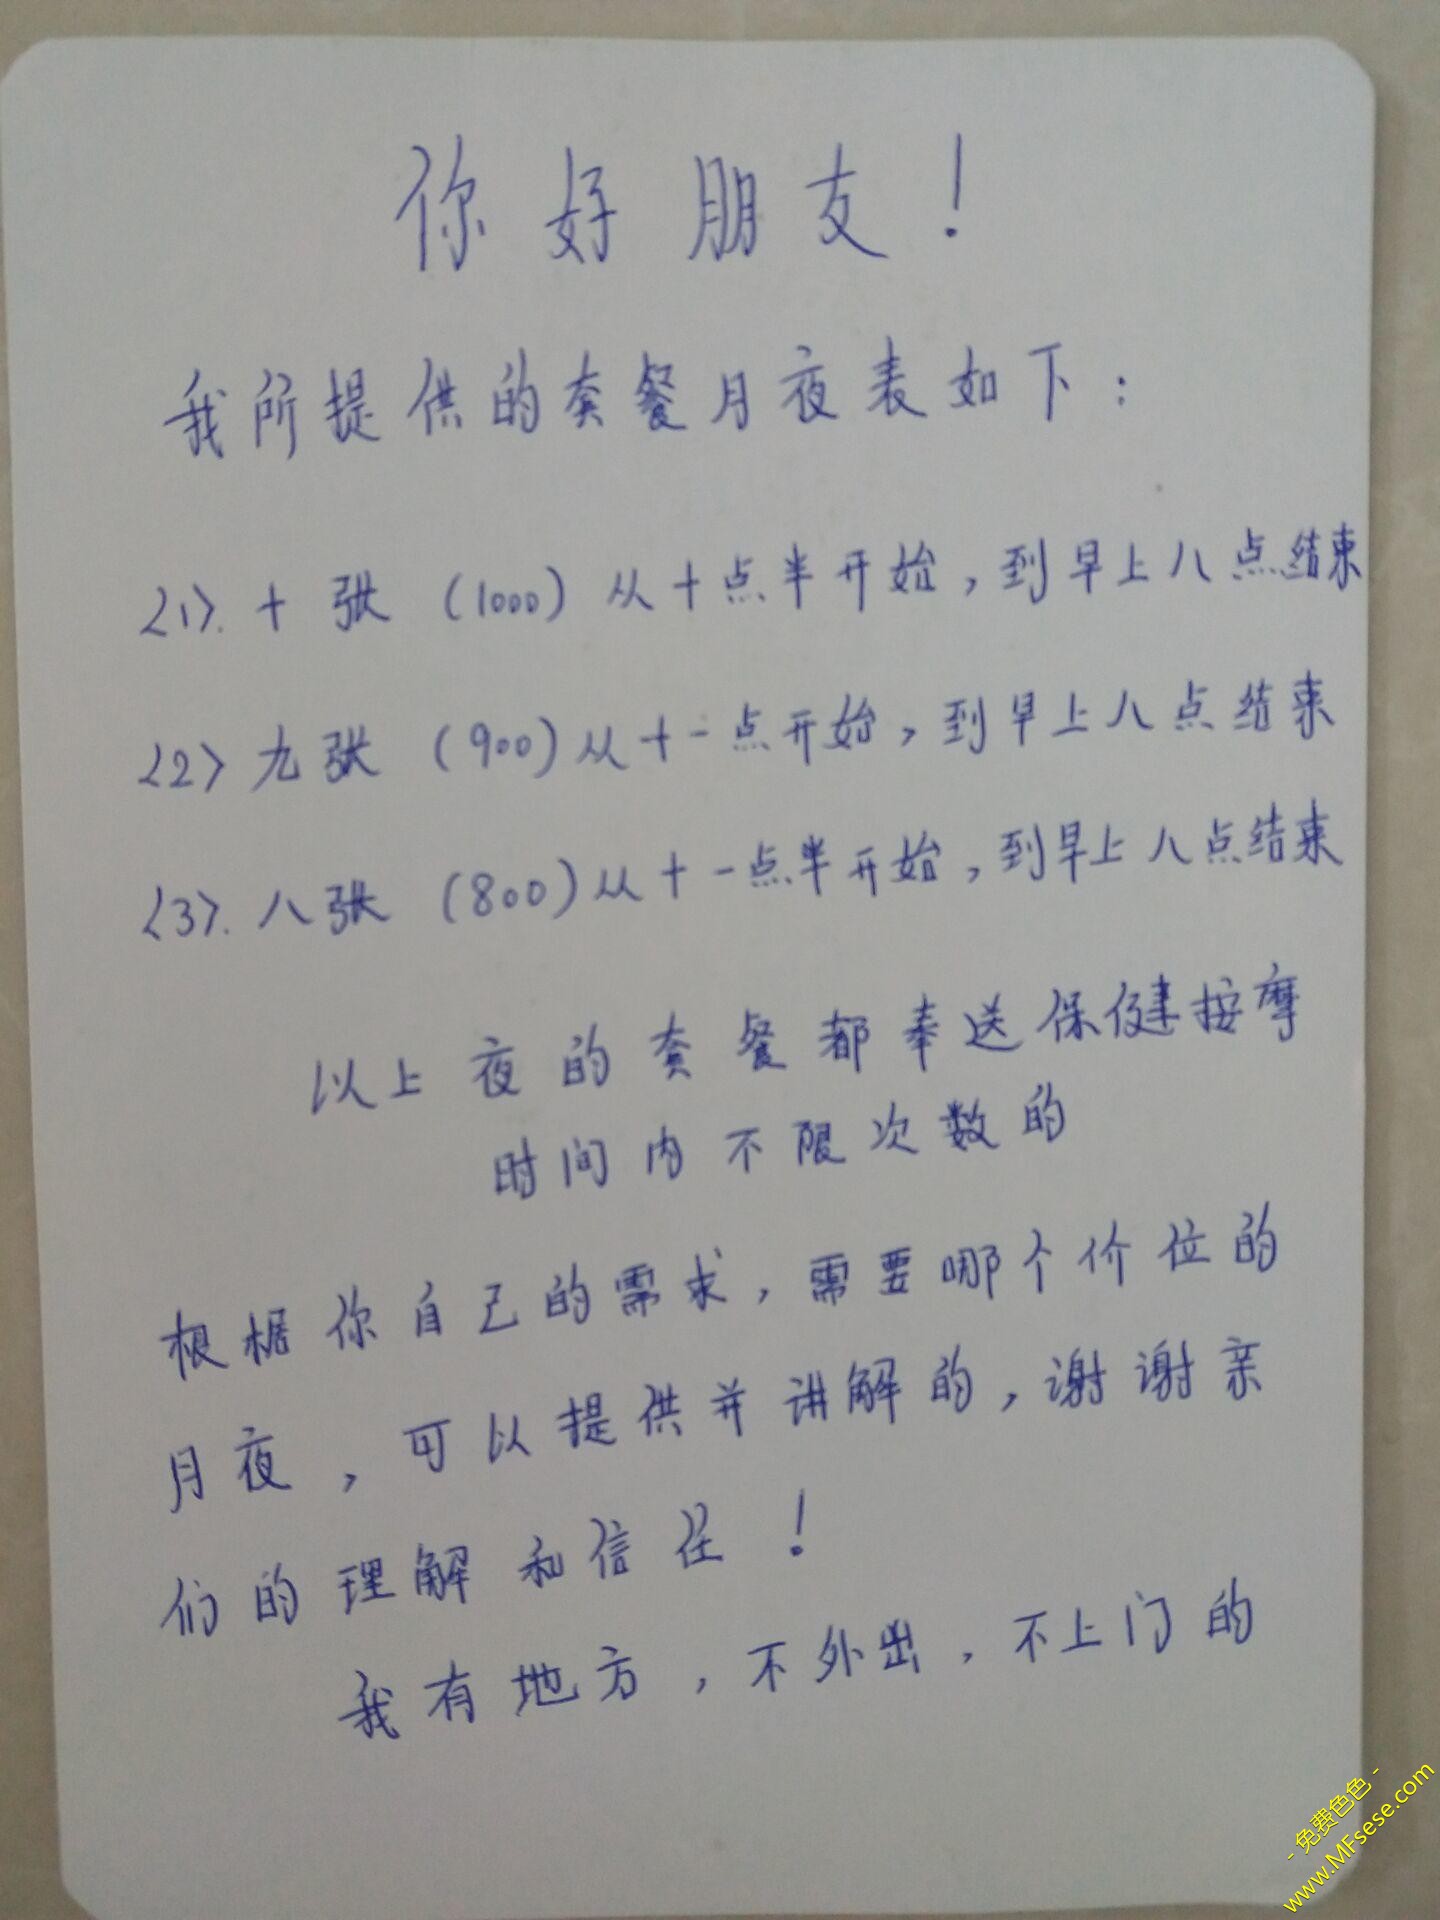 你好朋友！
我所提供的套餐月夜表如下：
〈1〉.十张（1000）从十点半开始，到早上八点结束
〈2〉九张（900）从十一点开始，到早上八点结束
〈3〉.八张（800）从十一点半开始，到早上八点结束
以上夜的套餐都奉送保健按摩
时间内不限次数的
根椐你自己的需求，需要哪个价位的
月夜，可以提供并讲解的，谢谢亲
们的理解和信任！
我有地方，不外出，不上门的
- 免费色色 -
www.MFsese.com